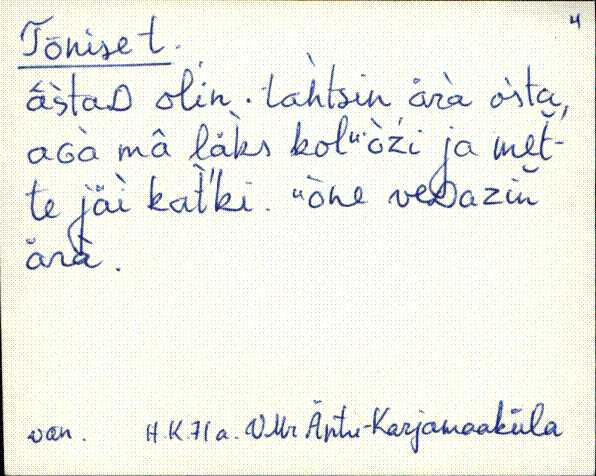 4
Tōniset.
ǟ̀stad olin. tàhtsin ärà òsta,
aGà mâ läks kolᵘòźi ja met̆-
te jäì kat̀'ki. ᵘòne veDaziň
ärà.
van. H.K. 71 a. VMr Äntu-Karjamaaküla